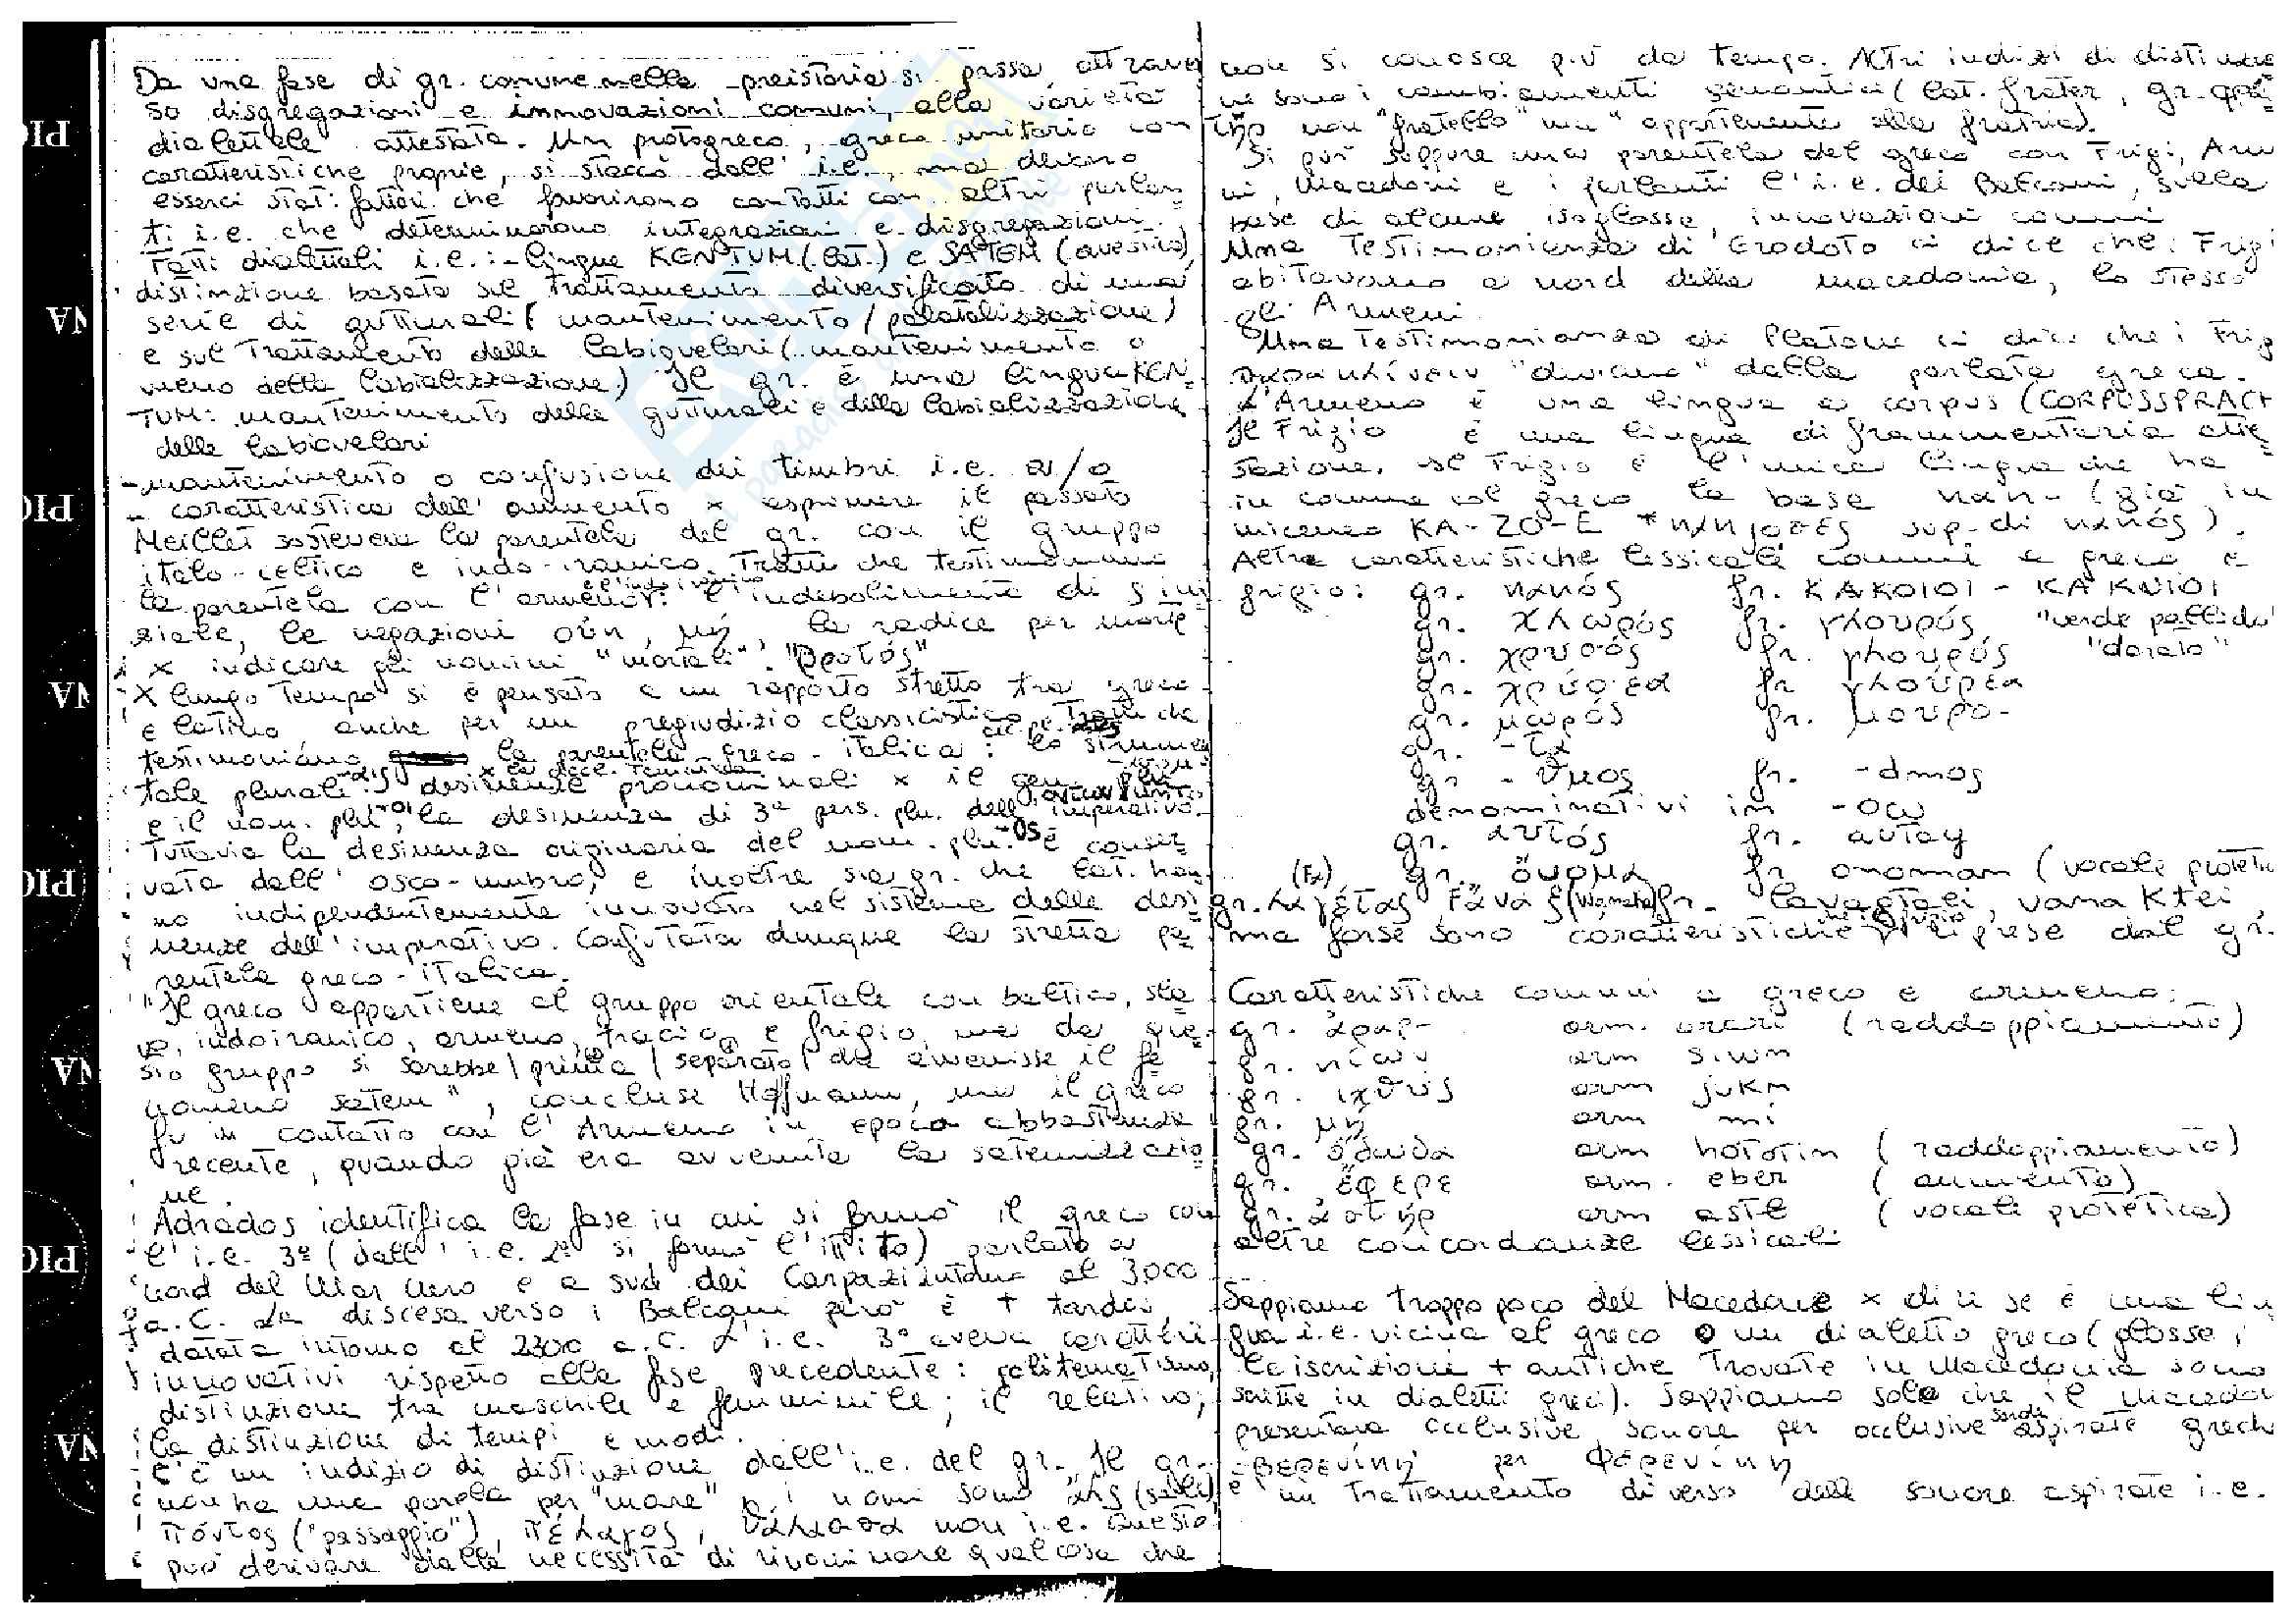 Da una fase di gr. comune nella preistoria si passa, attraver
so disgregazioni e innovazioni comuni, alla varietà
dialettale attestata. Un protogreco, greco unitario con
caratteristiche proprie, si staccò dall'i.e., ma devono
esserci stati fattori che favorirono contatti con altri parlan-
ti i.e. che determinarono integrazioni e disgregazioni.
Fatti dialettali i.e.: - lingue KENTUM (lat.) e SATEM (avestico)
distinzione basata sul trattamento diversificato di una
serie di gutturali (mantenimento/palatalizzazione)
e sul trattamento delle labiovelari (mantenimento o
meno della labializzazione) Il gr. è una lingua KEN-
TUM: mantenimento delle gutturali e della labializzazione
delle labiovelari
- mantenimento o confusione dei timbri i.e. a/o
- caratteristica dell'aumento x esprimere il passato
Meillet sosteneva la parentela del gr. con il gruppo
italo-celtico e indo-iranico. Tratti che testimoniano
la parentela con l'armeno e l'indoiranico: l'indebolimento di s ini
ziale, le negazioni οὐκ, μή, la radice per morte
x indicare gli uomini "mortali": "βροτός"
X lungo tempo si è pensato a un rapporto stretto tra greco
e latino, anche per un pregiudizio classicistico. Tratti che
testimoniano la parentela greco-italica: lo strumen
tale plurale -αις, desinenze pronominali x il gen. plu.
e il nom. plu. -οι, la desinenza di 3ª pers. plu. dell'imperativo.
Tuttavia la desinenza originaria del nom. plu. -os è conser-
vata dall'osco-umbro, e inoltre sia gr. che lat. han-
no indipendentemente innovato nel sistema delle desi-
nenze dell'imperativo. Confutata dunque la stretta pa-
rentela greco-italica.
"Il greco appartiene al gruppo orientale con baltico, sla
vo, indoiranico, armeno, tracio, e frigio, ma da que-
sto gruppo si sarebbe separato prima che avvenisse il fe
nomeno satem", concluse Hoffmann, ma il greco
fu in contatto con l'Armeno in epoca abbastanza
recente, quando già era avvenuta la satemizzazio
ne.
Adrados identifica la fase in cui si formò il greco con
l'i.e. 3º (dall'i.e. 2º si formò l'ittito) parlato a
nord del Mar Nero e a sud dei Carpazi intorno al 3000
a.C. La discesa verso i Balcani però è + tardi,
datata intorno al 2300 a.C. L'i.e. 3º aveva caratteri
innovativi rispetto alla fase precedente: politematismo,
distinzione tra maschile e femminile; il relativo;
la distinzione di tempi e modi.
C'è un indizio di distinzione dall'i.e. del gr. Il gr.
non ha una parola per "mare" i nomi sono ἅλς (sale),
πόντος ("passaggio"), πέλαγος, θάλασσα non i.e. Questo
può derivare dalla necessità di rinominare qualcosa che
non si conosce più da tempo. Altri indizi di distinzio
ne sono i cambiamenti semantici (lat. frater, gr. φρά-
τηρ non "fratello" ma "appartenente alla fratria).
Si può supporre una parentela del greco con Frigi, Arme
ni, Macedoni e i parlanti l'i.e. dei Balcani, sulla
base di alcune isoglosse, innovazioni comuni
Una testimonianza di Erodoto ci dice che i Frigi
abitavano a nord della Macedonia, lo stesso
gli Armeni.
Una testimonianza di Platone ci dice che i Frig
"deviano" dalla parlata greca.
L'Armeno è una lingua a corpus (CORPUSSPRACH
Il Frigio è una lingua di frammentaria atte-
stazione. Il Frigio è l'unica lingua che ha
in comune col greco la base κακ- (già in
miceneo KA-ZO-E *κακjοσες sup. di κακός).
Altre caratteristiche lessicali comuni a greco e
frigio: gr. κακός fr. KAKOIOI - KAKNIOI
gr. χλωρός fr. γλουρός "verde pallido"
gr. χρυσός fr. γλουρός "dorato"
gr. χρύσεα fr γλούρεα
gr. μωρός fr. μουρο-
gr. -τα
gr - θμος fr. -dmos
denominativi in -οω
gr. αυτός fr. αυταy
gr. ὄνομα fr onoman (vocale proteti
gr. λαγέτας Fάναξ (wanaka) fr. lavagtaei, vanaktei,
ma forse sono caratteristiche riprese dal gr.
Caratteristiche comuni a greco e armeno:
gr. ἀραρ- arm. arari (raddoppiamento)
gr. κίων arm siwn
gr. ἰχθύς arm jukn
gr. μή arm mi
gr. ὄδωδα arm hototin (raddoppiamento)
gr. ἔφερε arm. eber (aumento)
gr. ἀστήρ arm astł (vocale protetica)
altre concordanze lessicali
Sappiamo troppo poco del Macedone x dire se è una lin
gua i.e. vicina al greco o un dialetto greco (glosse;
le iscrizioni + antiche trovate in Macedonia sono
scritte in dialetti greci). Sappiamo solo che il Macedo
presentava occlusive sonore per occlusive sorde aspirate grech
- Βερενίκη per Φερενίκη
è un trattamento diverso delle sonore aspirate i.e.